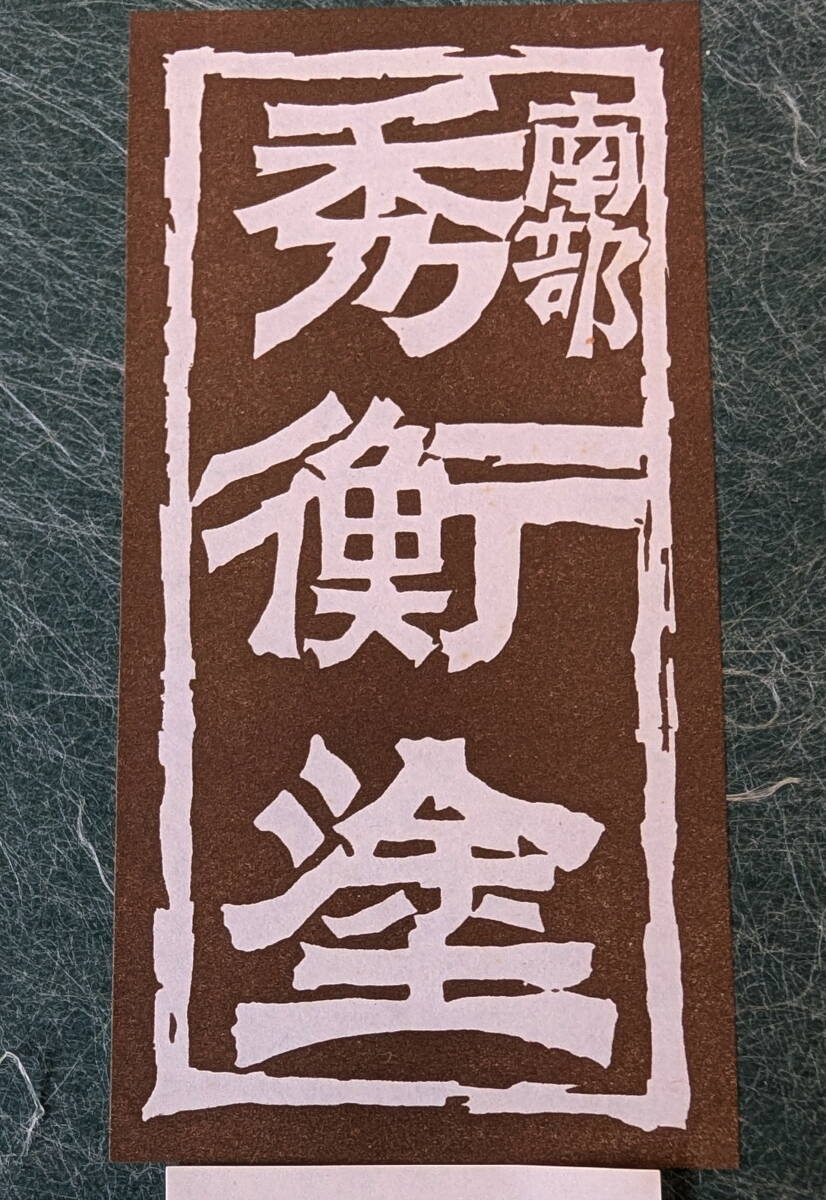 南部
秀衡塗